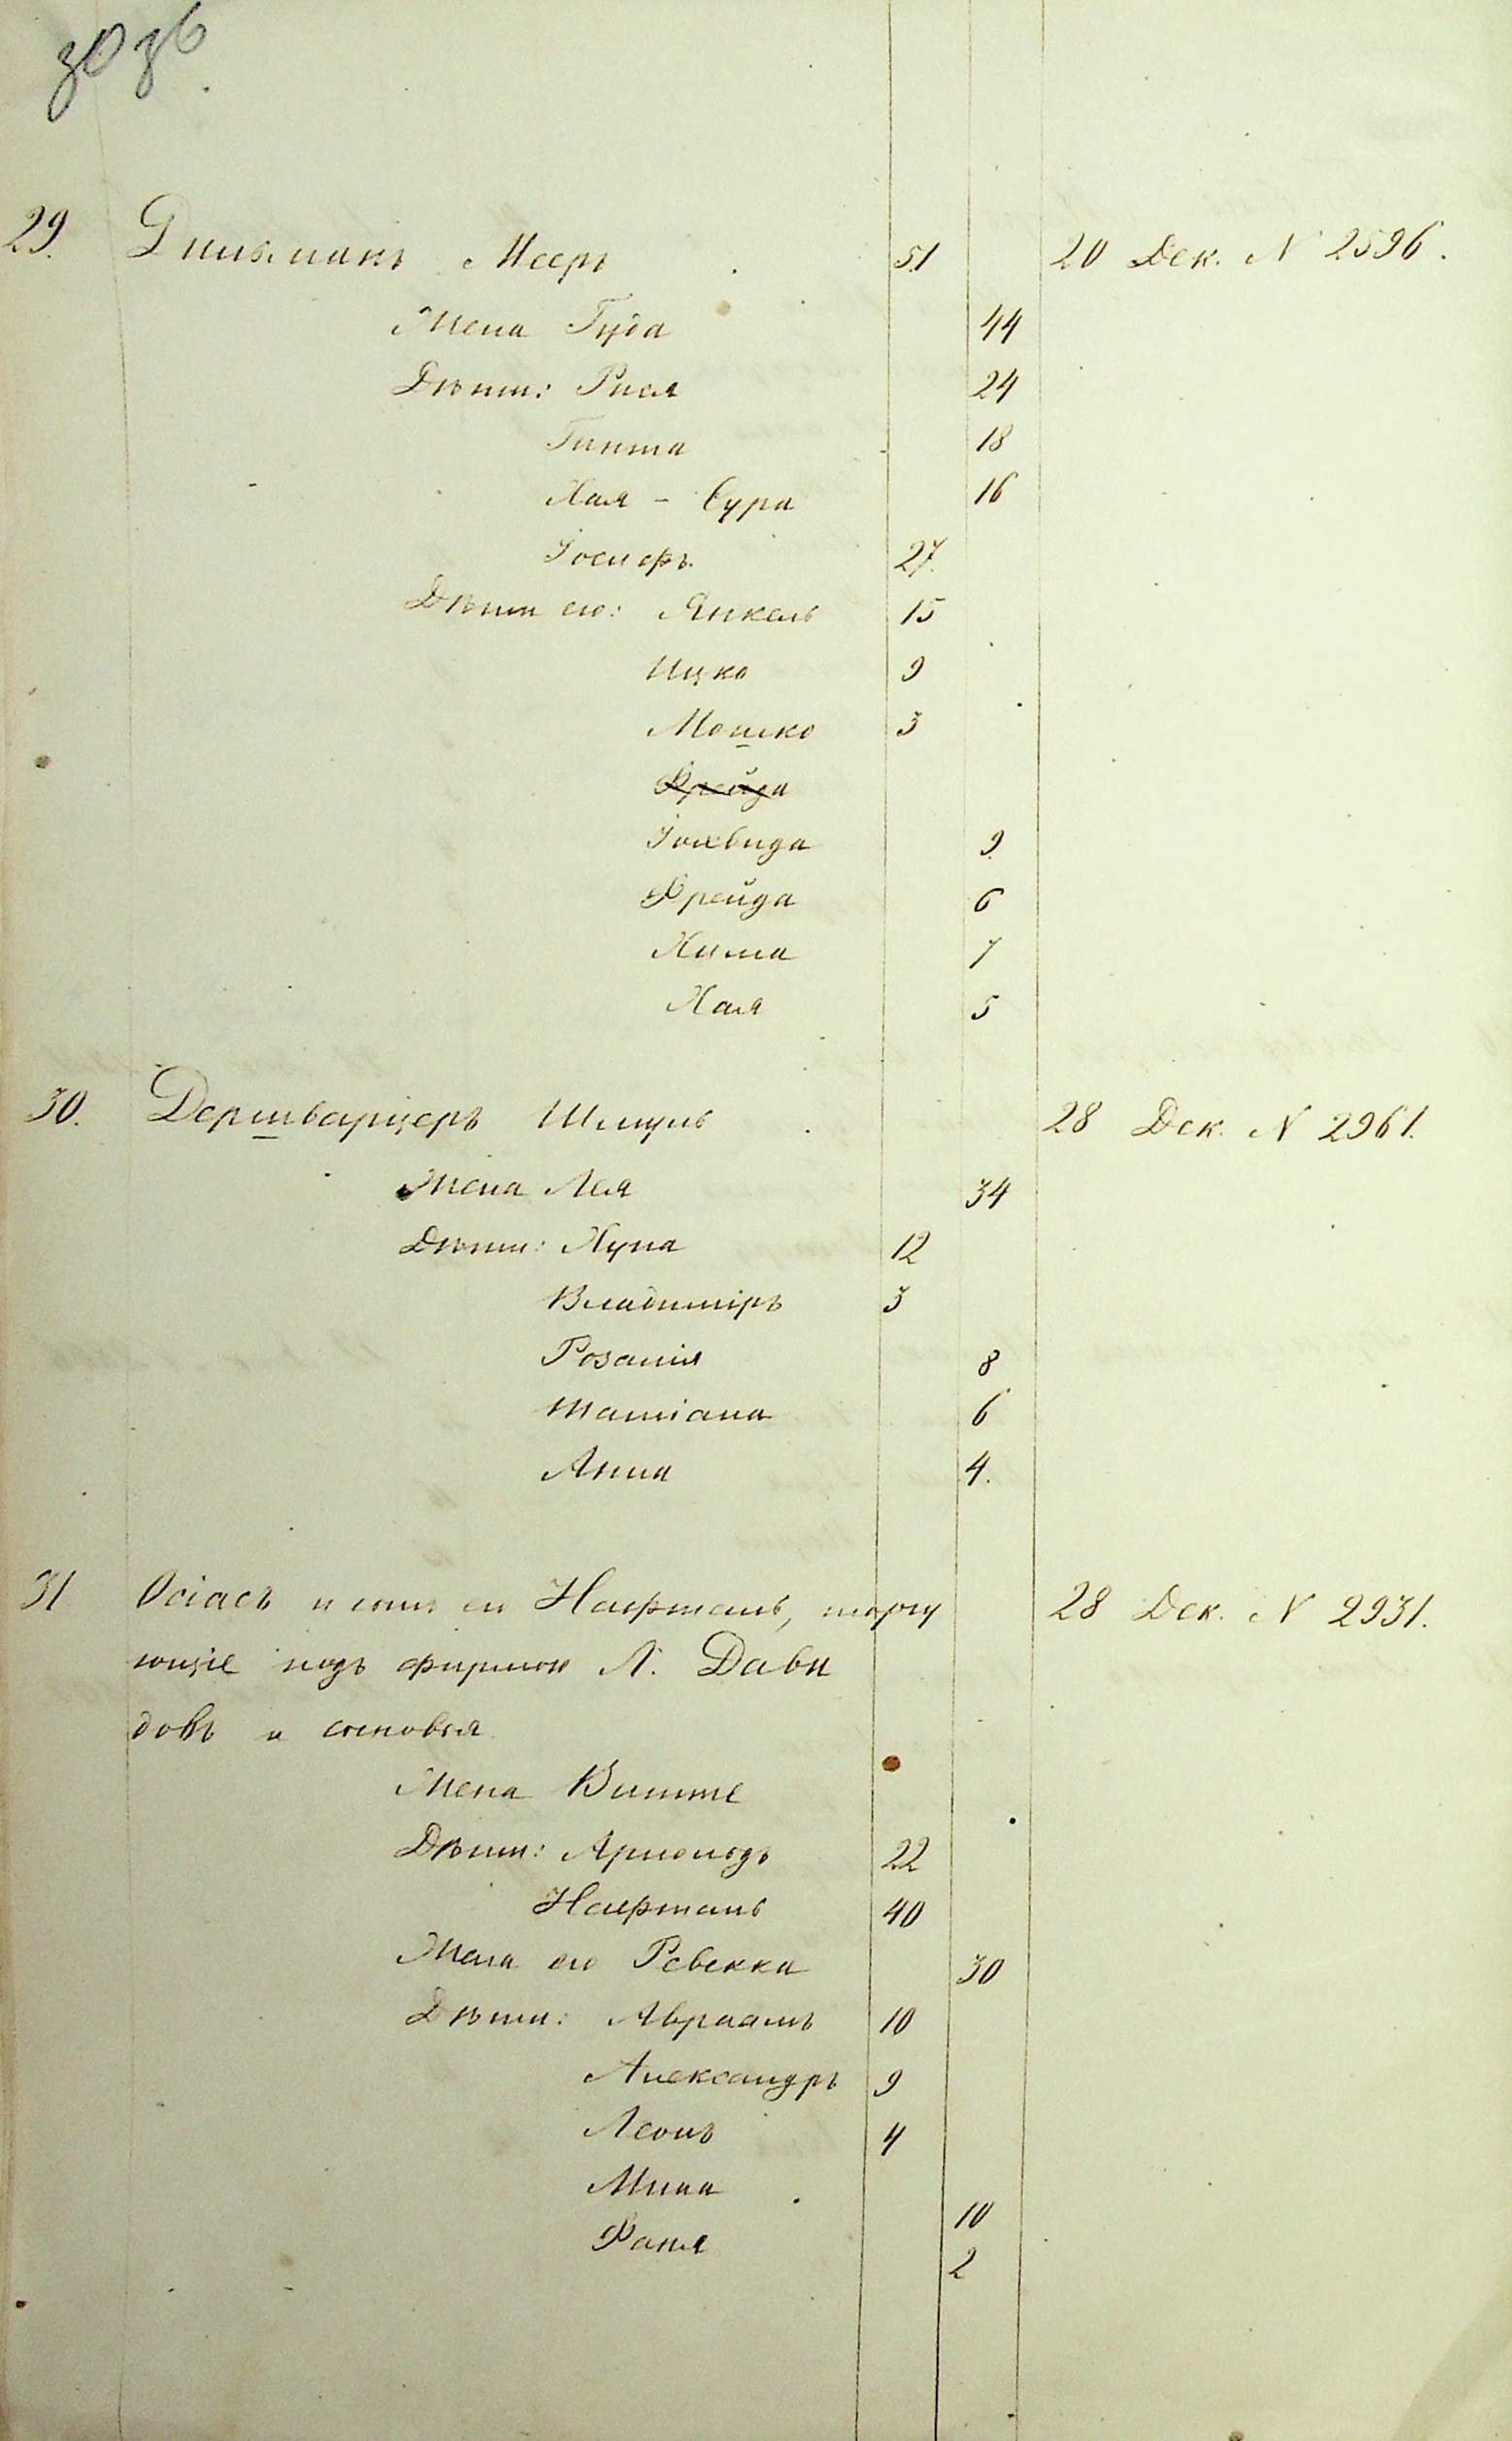 29. Дильманъ Мееръ 51 20 Дек. N 2596.
Жена Гуда 44
Дѣти: Рися 24
Гитта 18
Хая - Сура 16
Іосифъ 27.
Дѣти его: Янкель 15
Ицко 9
Мошко 3
Фрейда
Іохвида 9.
Фрейда 6
Хима 7
Хая 5
30. Дершварцеръ Шмуль 28 Дек. N 2961.
Жена Лея 34
Дѣти: Хуна 12
Владиміръ 3
Розалія 8
Татіана 6
Анна 4.
31 Осіасъ и сынъ его Нафталь, торгу
ющіе подъ фирмою Л. Дави
довъ и сыновья
Жена Витте
Дѣти: Арнольдъ 22
Нафталь 40
Жена его Ревекка 30
Дѣти: Авраамъ 10
Александръ 9
Леонъ 4
Мина 10
Фаня 2